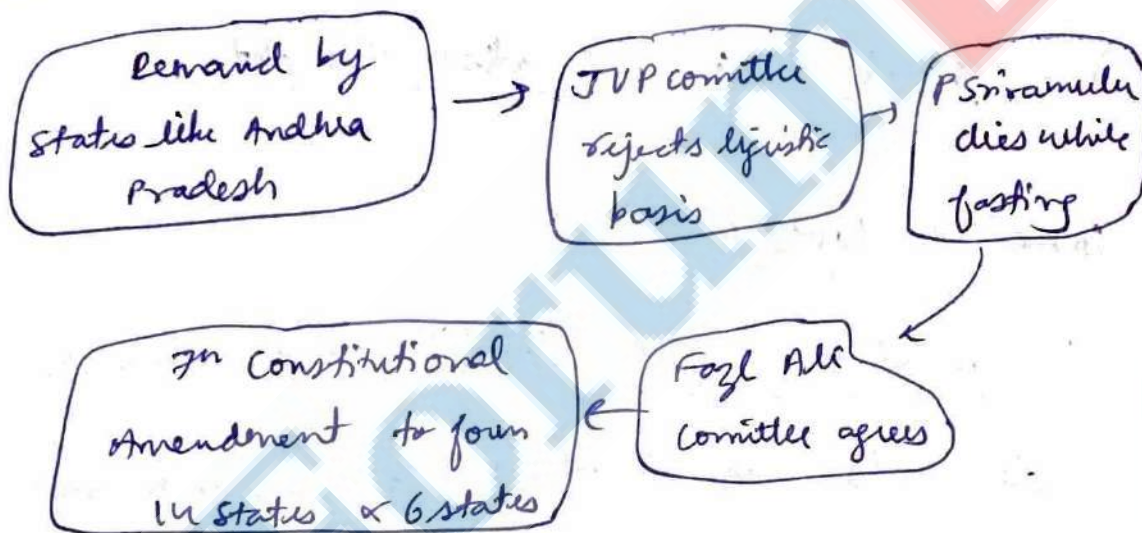 Demand by
states like Andhra
Pradesh
JVP comittee
rejects liguistic
basis
P Sriramulu
dies while
fasting
Fazl Ali
comittee agrees
7th Constitutional
Amendment to form
14 states & 6 states
Forum